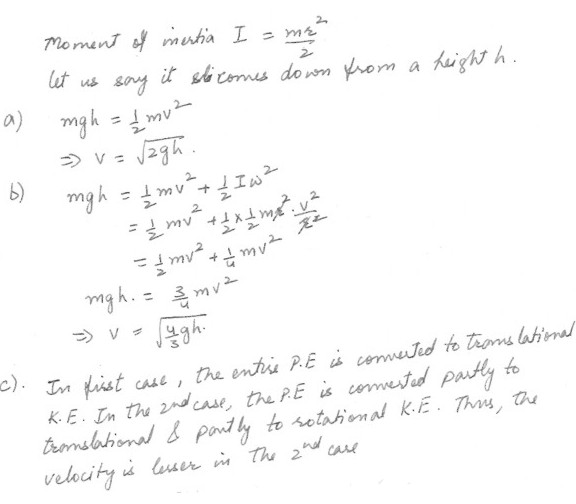 Moment of inertia I = mr²/2
let us say it comes down from a height h.
a) mgh = 1/2 mv²
⇒ v = √2gh.
b) mgh = 1/2 mv² + 1/2 Iω²
= 1/2 mv² + 1/2 × 1/2 mr² · v²/r²
= 1/2 mv² + 1/4 mv²
mgh. = 3/4 mv²
⇒ v = √4/3 gh.
c). In first case, the entire P.E is converted to translational
K.E. In the 2nd case, the P.E is converted partly to
translational & partly to rotational K.E. Thus, the
velocity is lesser in the 2nd case